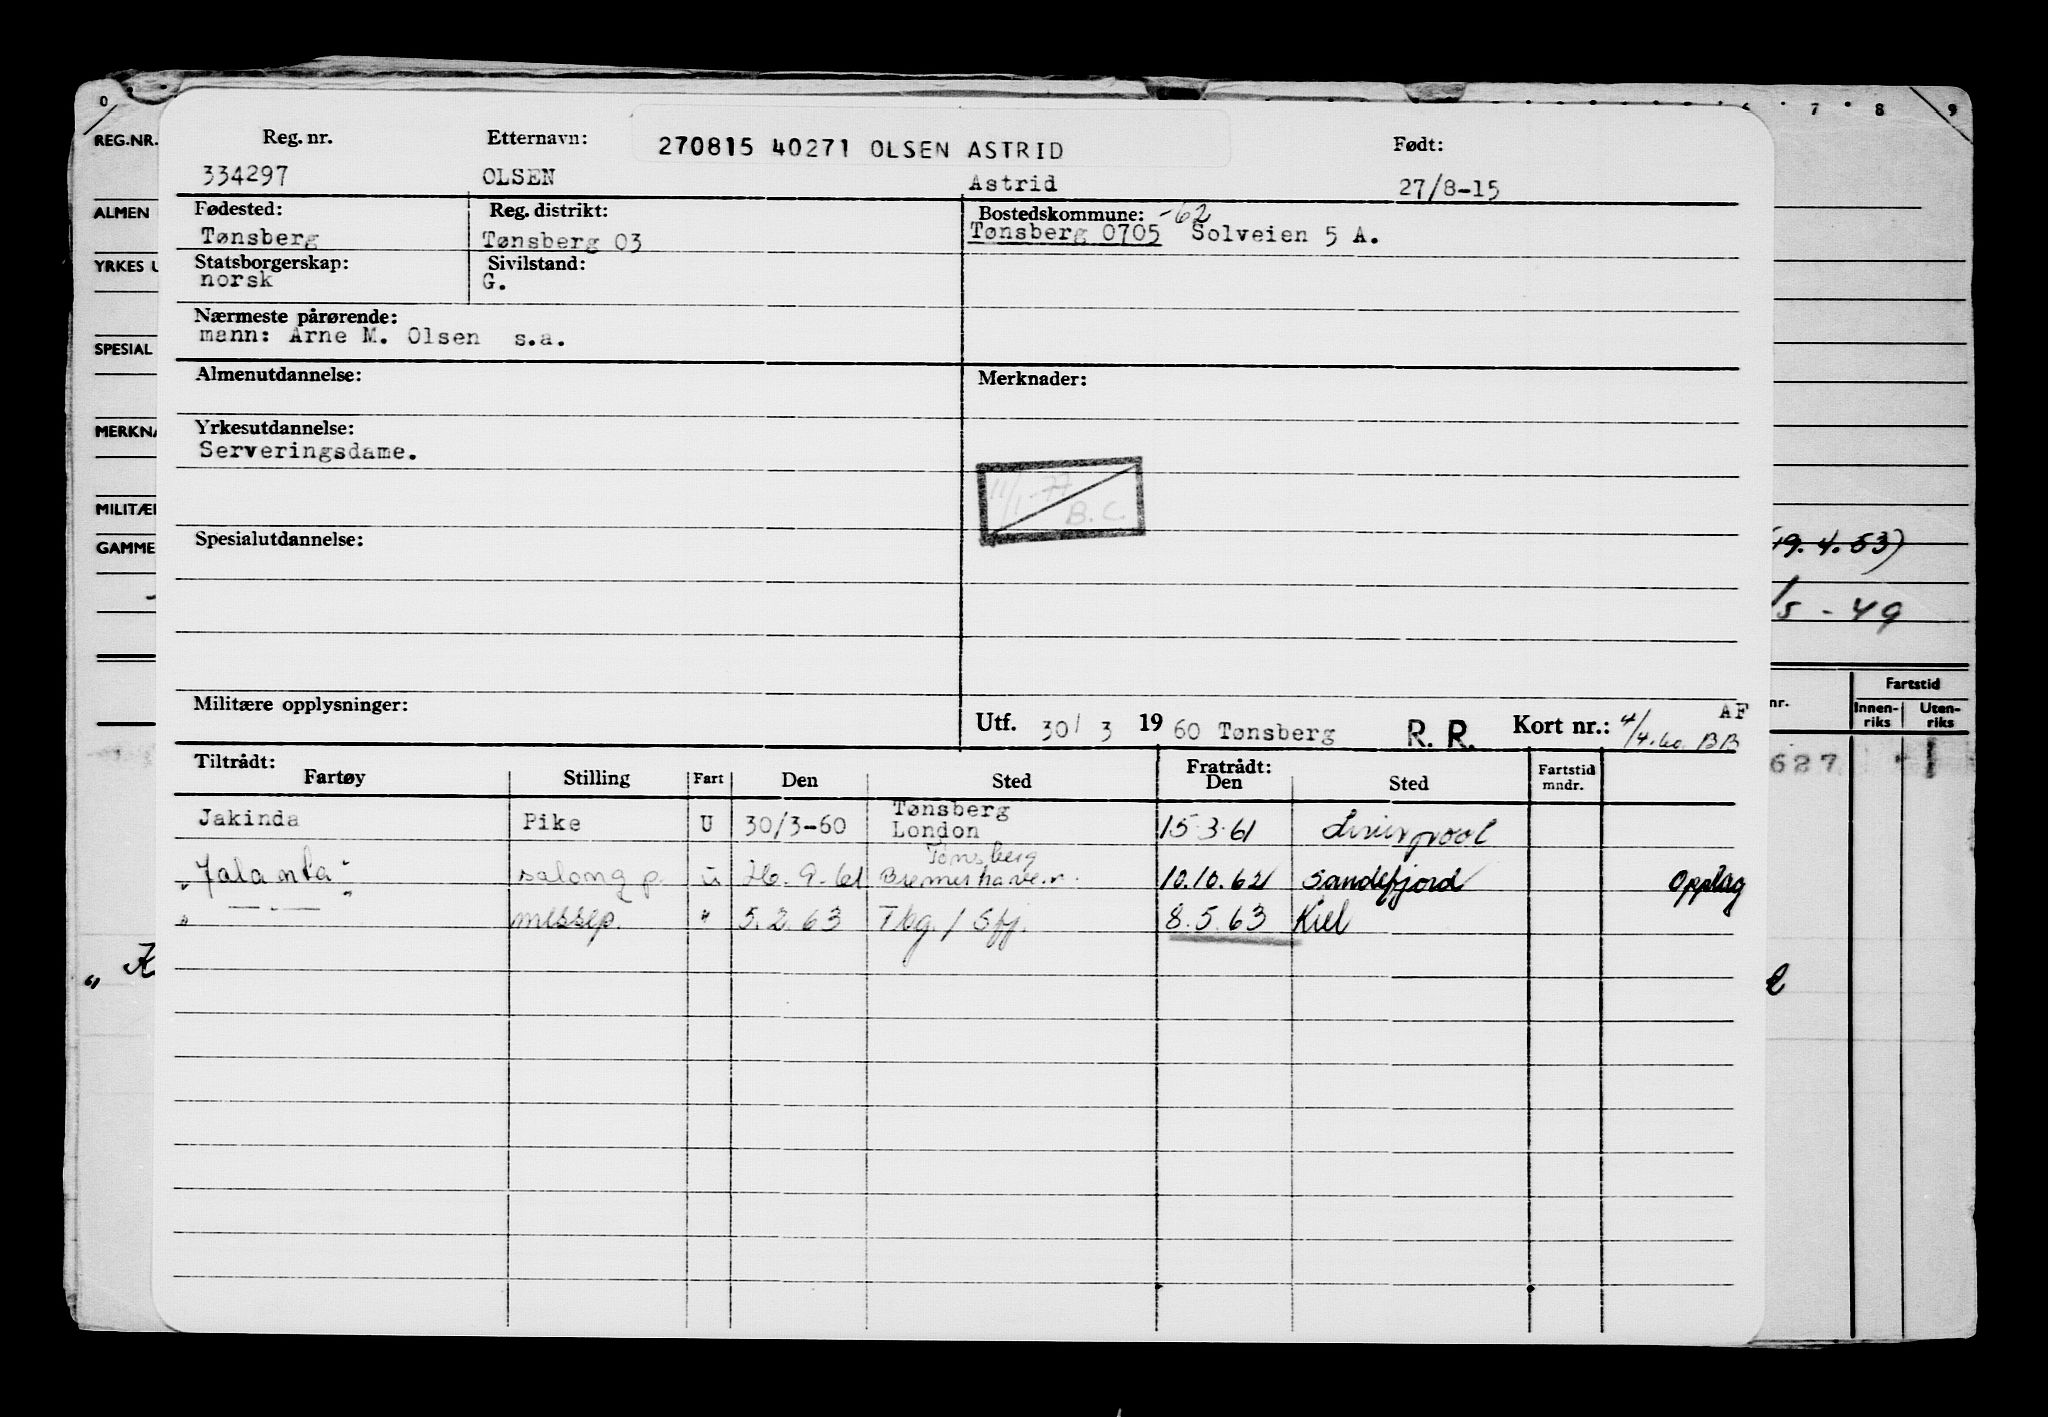 0 7 8 9
REG.NR. Reg. nr. Etternavn: 270815 40271 OLSEN ASTRID Født:
334297 OLSEN Astrid 27/8-15
ALMEN Fødested: Reg. distrikt: Bostedskommune: -62
Tønsberg Tønsberg 03 Tønsberg 0705 Solveien 5 A.
YRKES U Statsborgerskap: Sivilstand:
norsk G.
Nærmeste pårørende:
mann: Arne M. Olsen s.a.
SPESIAL
Almenutdannelse: Merknader:
MERKNA Yrkesutdannelse:
Serveringsdame.
11/1-77
B.C.
MILITÆR
GAMME Spesialutdannelse: 19.4.53)
/5 - 49
Fartstid
Militære opplysninger: nr. Innen-riks Uten-riks
Utf. 30/ 3 19 60 Tønsberg R. R. Kort nr.: 4/4.60 BB AF
627
Tiltrådt: Fratrådt:
Fartøy Stilling Fart Den Sted Den Sted Fartstid mndr.
Jakinda Pike U 30/3-60 Tønsberg London 15.3.61 Liverpool
"Jalanta" salong p. u 26.9.61 Tønsberg Bremerhaven. 10.10.62 Sandefjord Opplag
" — " — " messep. " 5.2.63 Tbg. / Sfj. 8.5.63 Kiel
" K